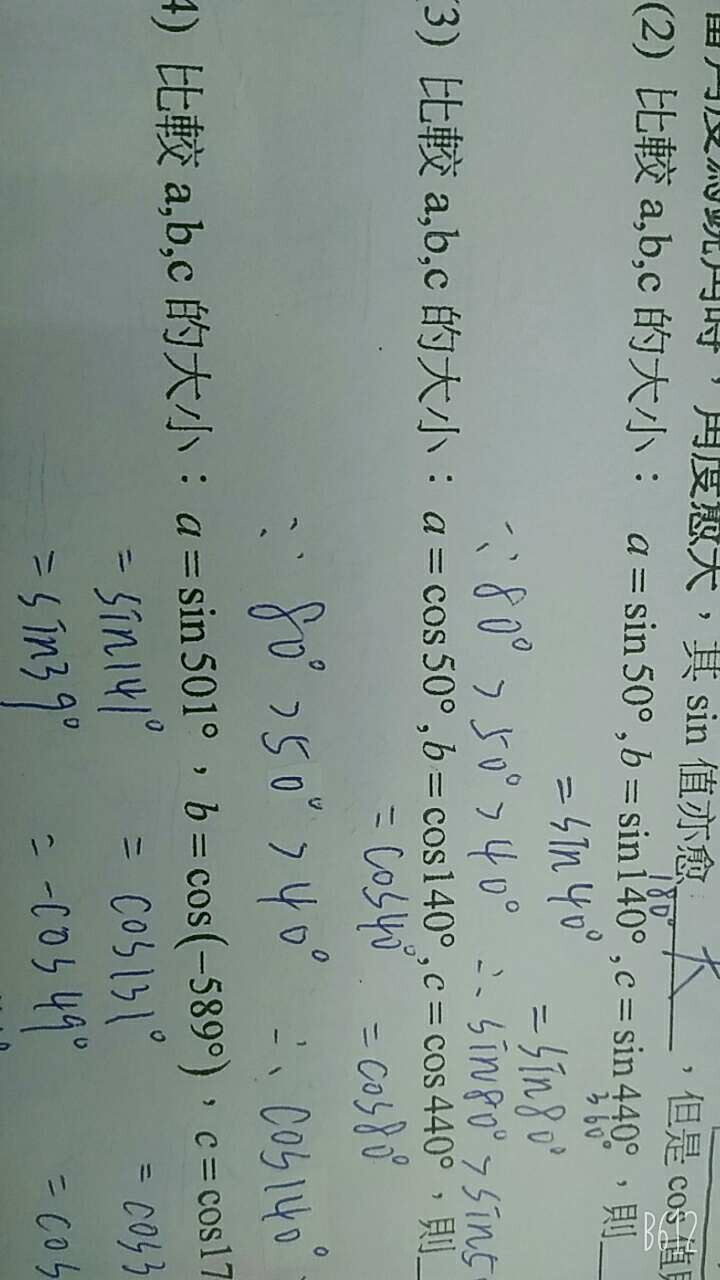 當角度為銳角時，角度愈大，其 sin 值亦愈 大 ，但是 cos 值
180°
(2) 比較 a,b,c 的大小： a=sin50°,b=sin140°,c=sin440°，則
360°
=sin40° =sin80°
∵ 80° > 50° > 40° ∴ sin80° > sin5
(3) 比較 a,b,c 的大小：a=cos50°,b=cos140°,c=cos440°，則
=cos40° =cos80°
∵ 80° > 50° > 40° ∴ cos140°
4) 比較 a,b,c 的大小：a=sin501°，b=cos(−589°)，c=cos17
=sin141° =cos131° =cos3
=sin39° =-cos49° =cos
B612